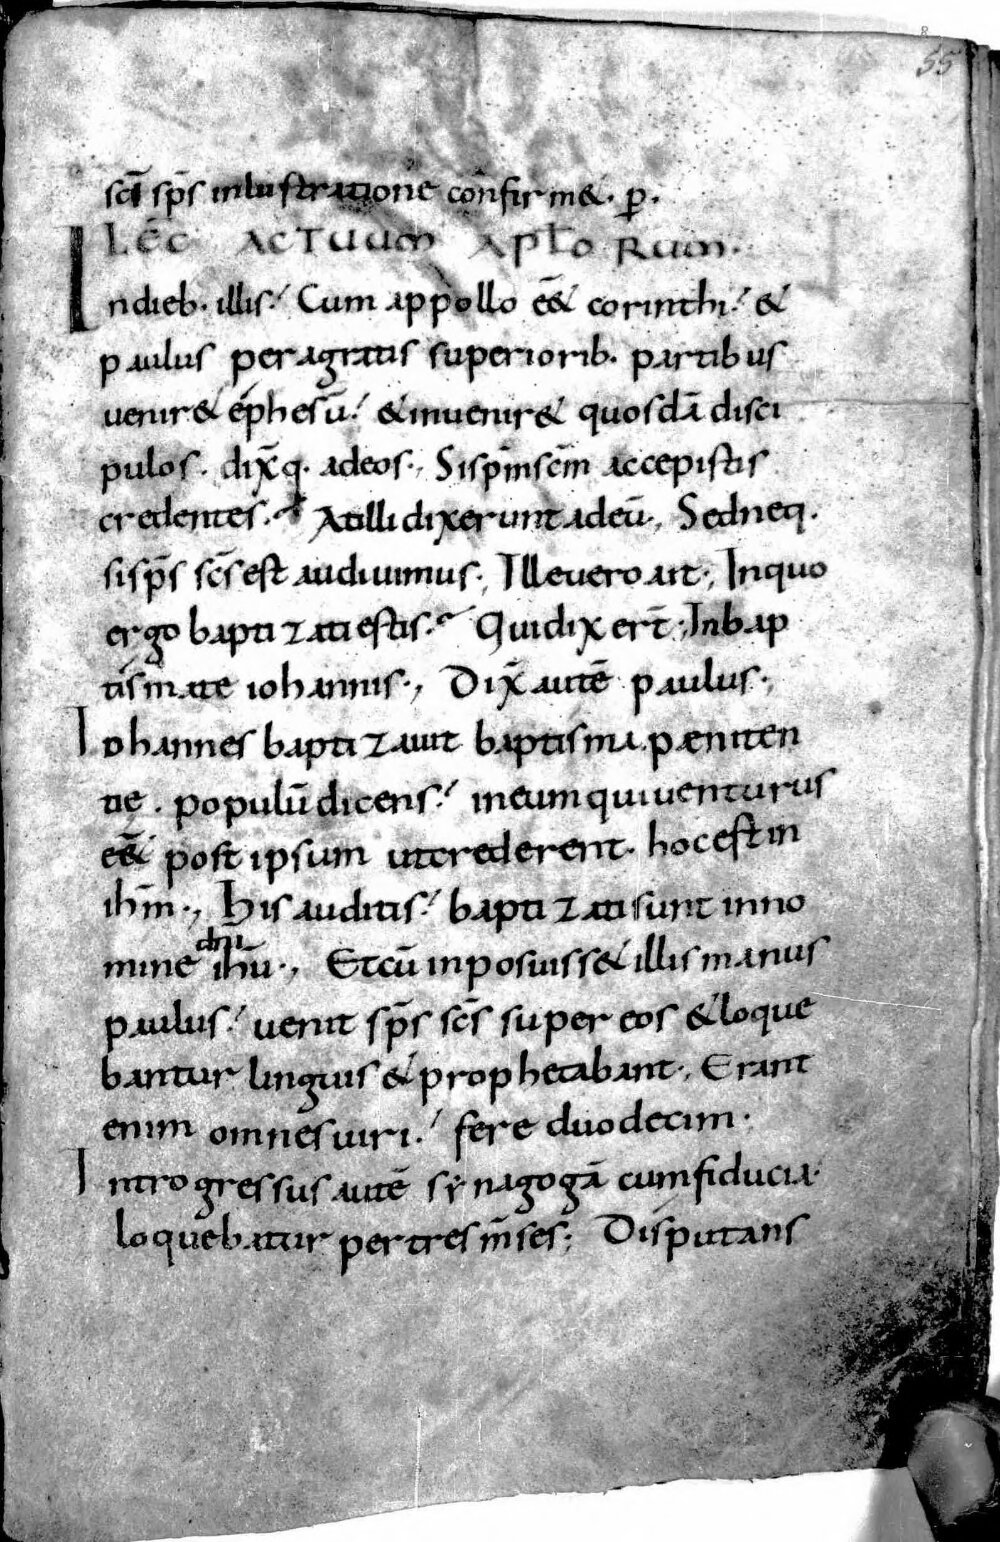 55
scī sp̄s inlustratione confirm&. p̄.
LEC̄ ACTUUM APL̄ORUM.
Indieb. illis. Cum appollo eē& corinthi. &
paulus peragratis superiorib. partibus
uenir& ephesū. & inuenir& quosdā disci
pulos. dix̄q. adeos., Sisp̄mscm̄ accepistis
credentes. Atilli dixerunt adeū., Sedneq.
sisp̄s scs̄ est audiuimus., Illeuero ait., Inquo
ergo baptizati estis. Quidixer̄t., Inbap
tismate iohannis., Dix̄ autē paulus.,
Iohannes baptizauit baptisma pæniten
tie. populū dicens. ineum quiuenturus
eē& post ipsum utcrederent. hocestin
ihm̄., His auditis. baptizati sunt inno
mine dnī ihū., Etcū inposuiss& illis manus
paulus. uenit sp̄s scs̄ super eos & loque
bantur linguis & prophetabant., Erant
enim omnes uiri. fere duodecim.
Introgressus autē synagogā cumfiducia.
loquebatur pertres m̄ses., Disputans